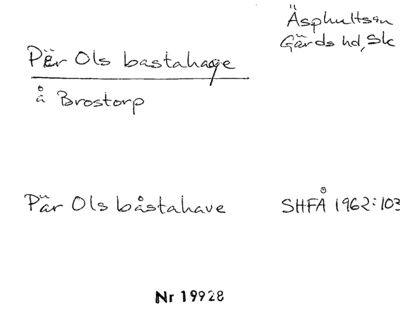 Äsphults sn
Gärds hd, Sk
Pär Ols bastahage
å Brostorp
Pär Ols båstahave
SHFÅ 1962:103
Nr 19928